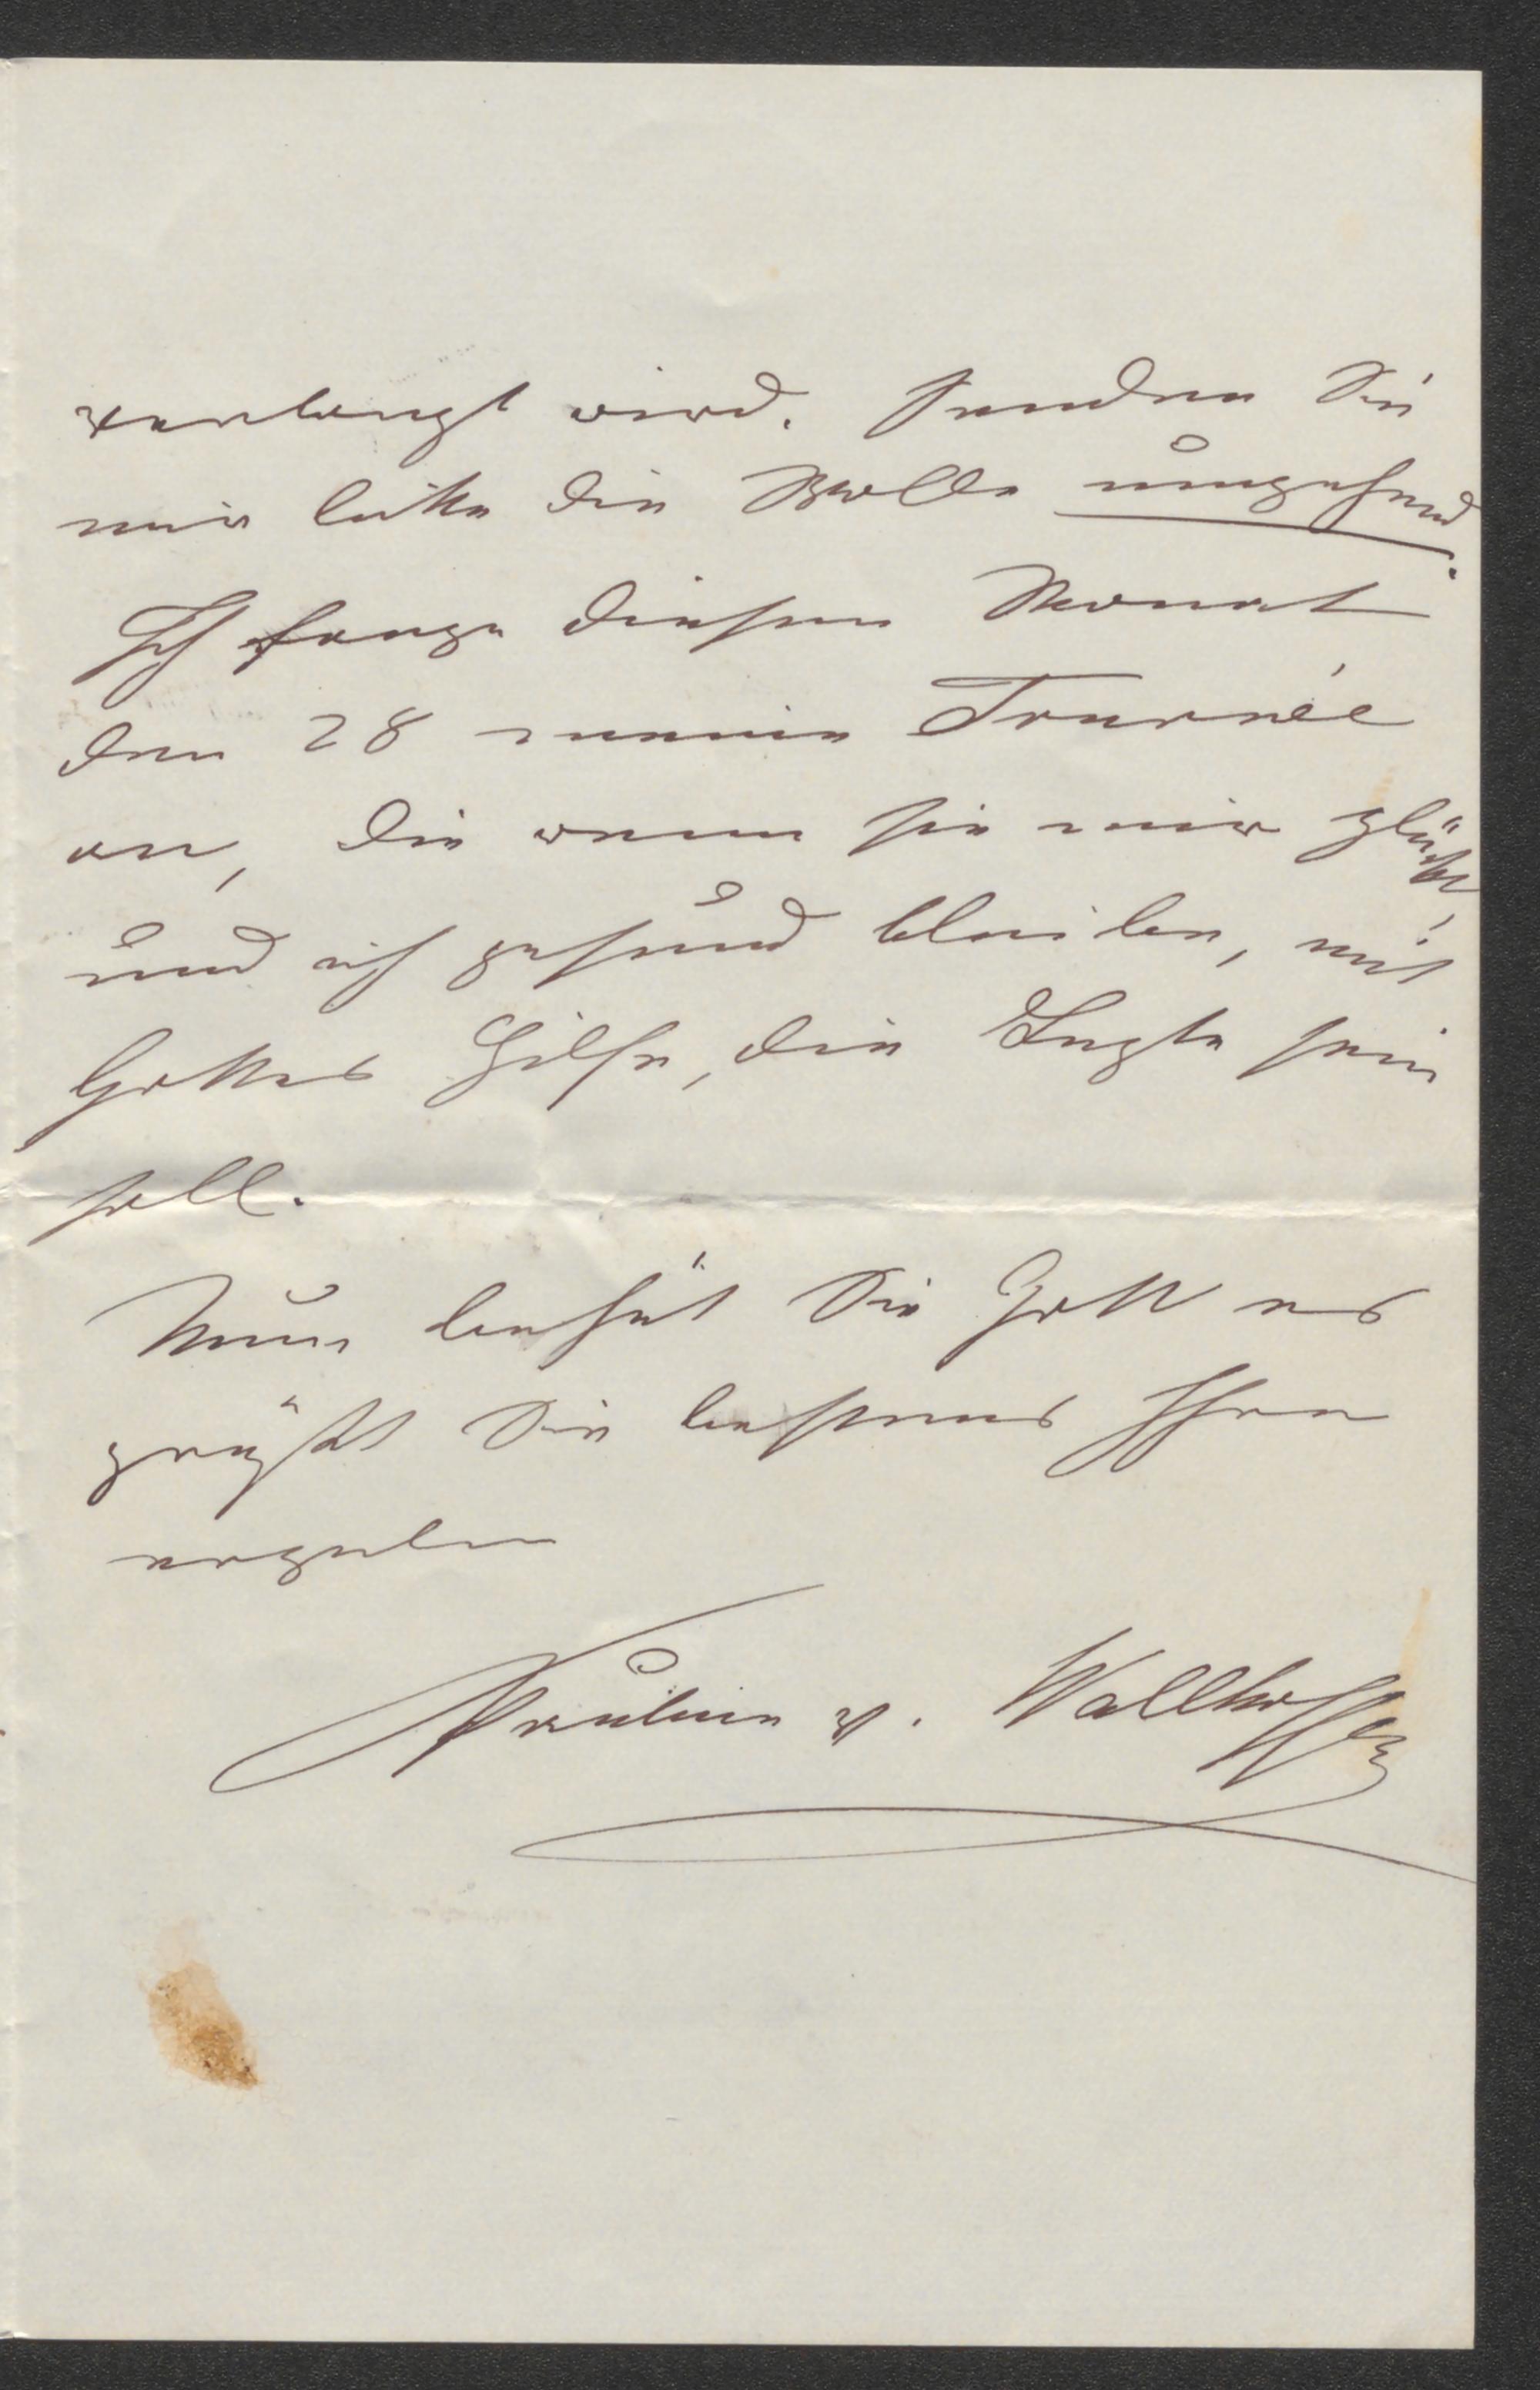 verlangt wird. Senden Sie
mir bitte die Rolle umgehend.
Ich fange diesen Monat
den 28 meine Tournée
an, die wenn sie mir glückt,
und ich gesund bleibe, mit
Gottes Hilfe, die Letzte sein
soll.
Nun behüt Sie Gott es
grüßt Sie bestens Ihre
ergebene
Pauline v. Wallhoffen